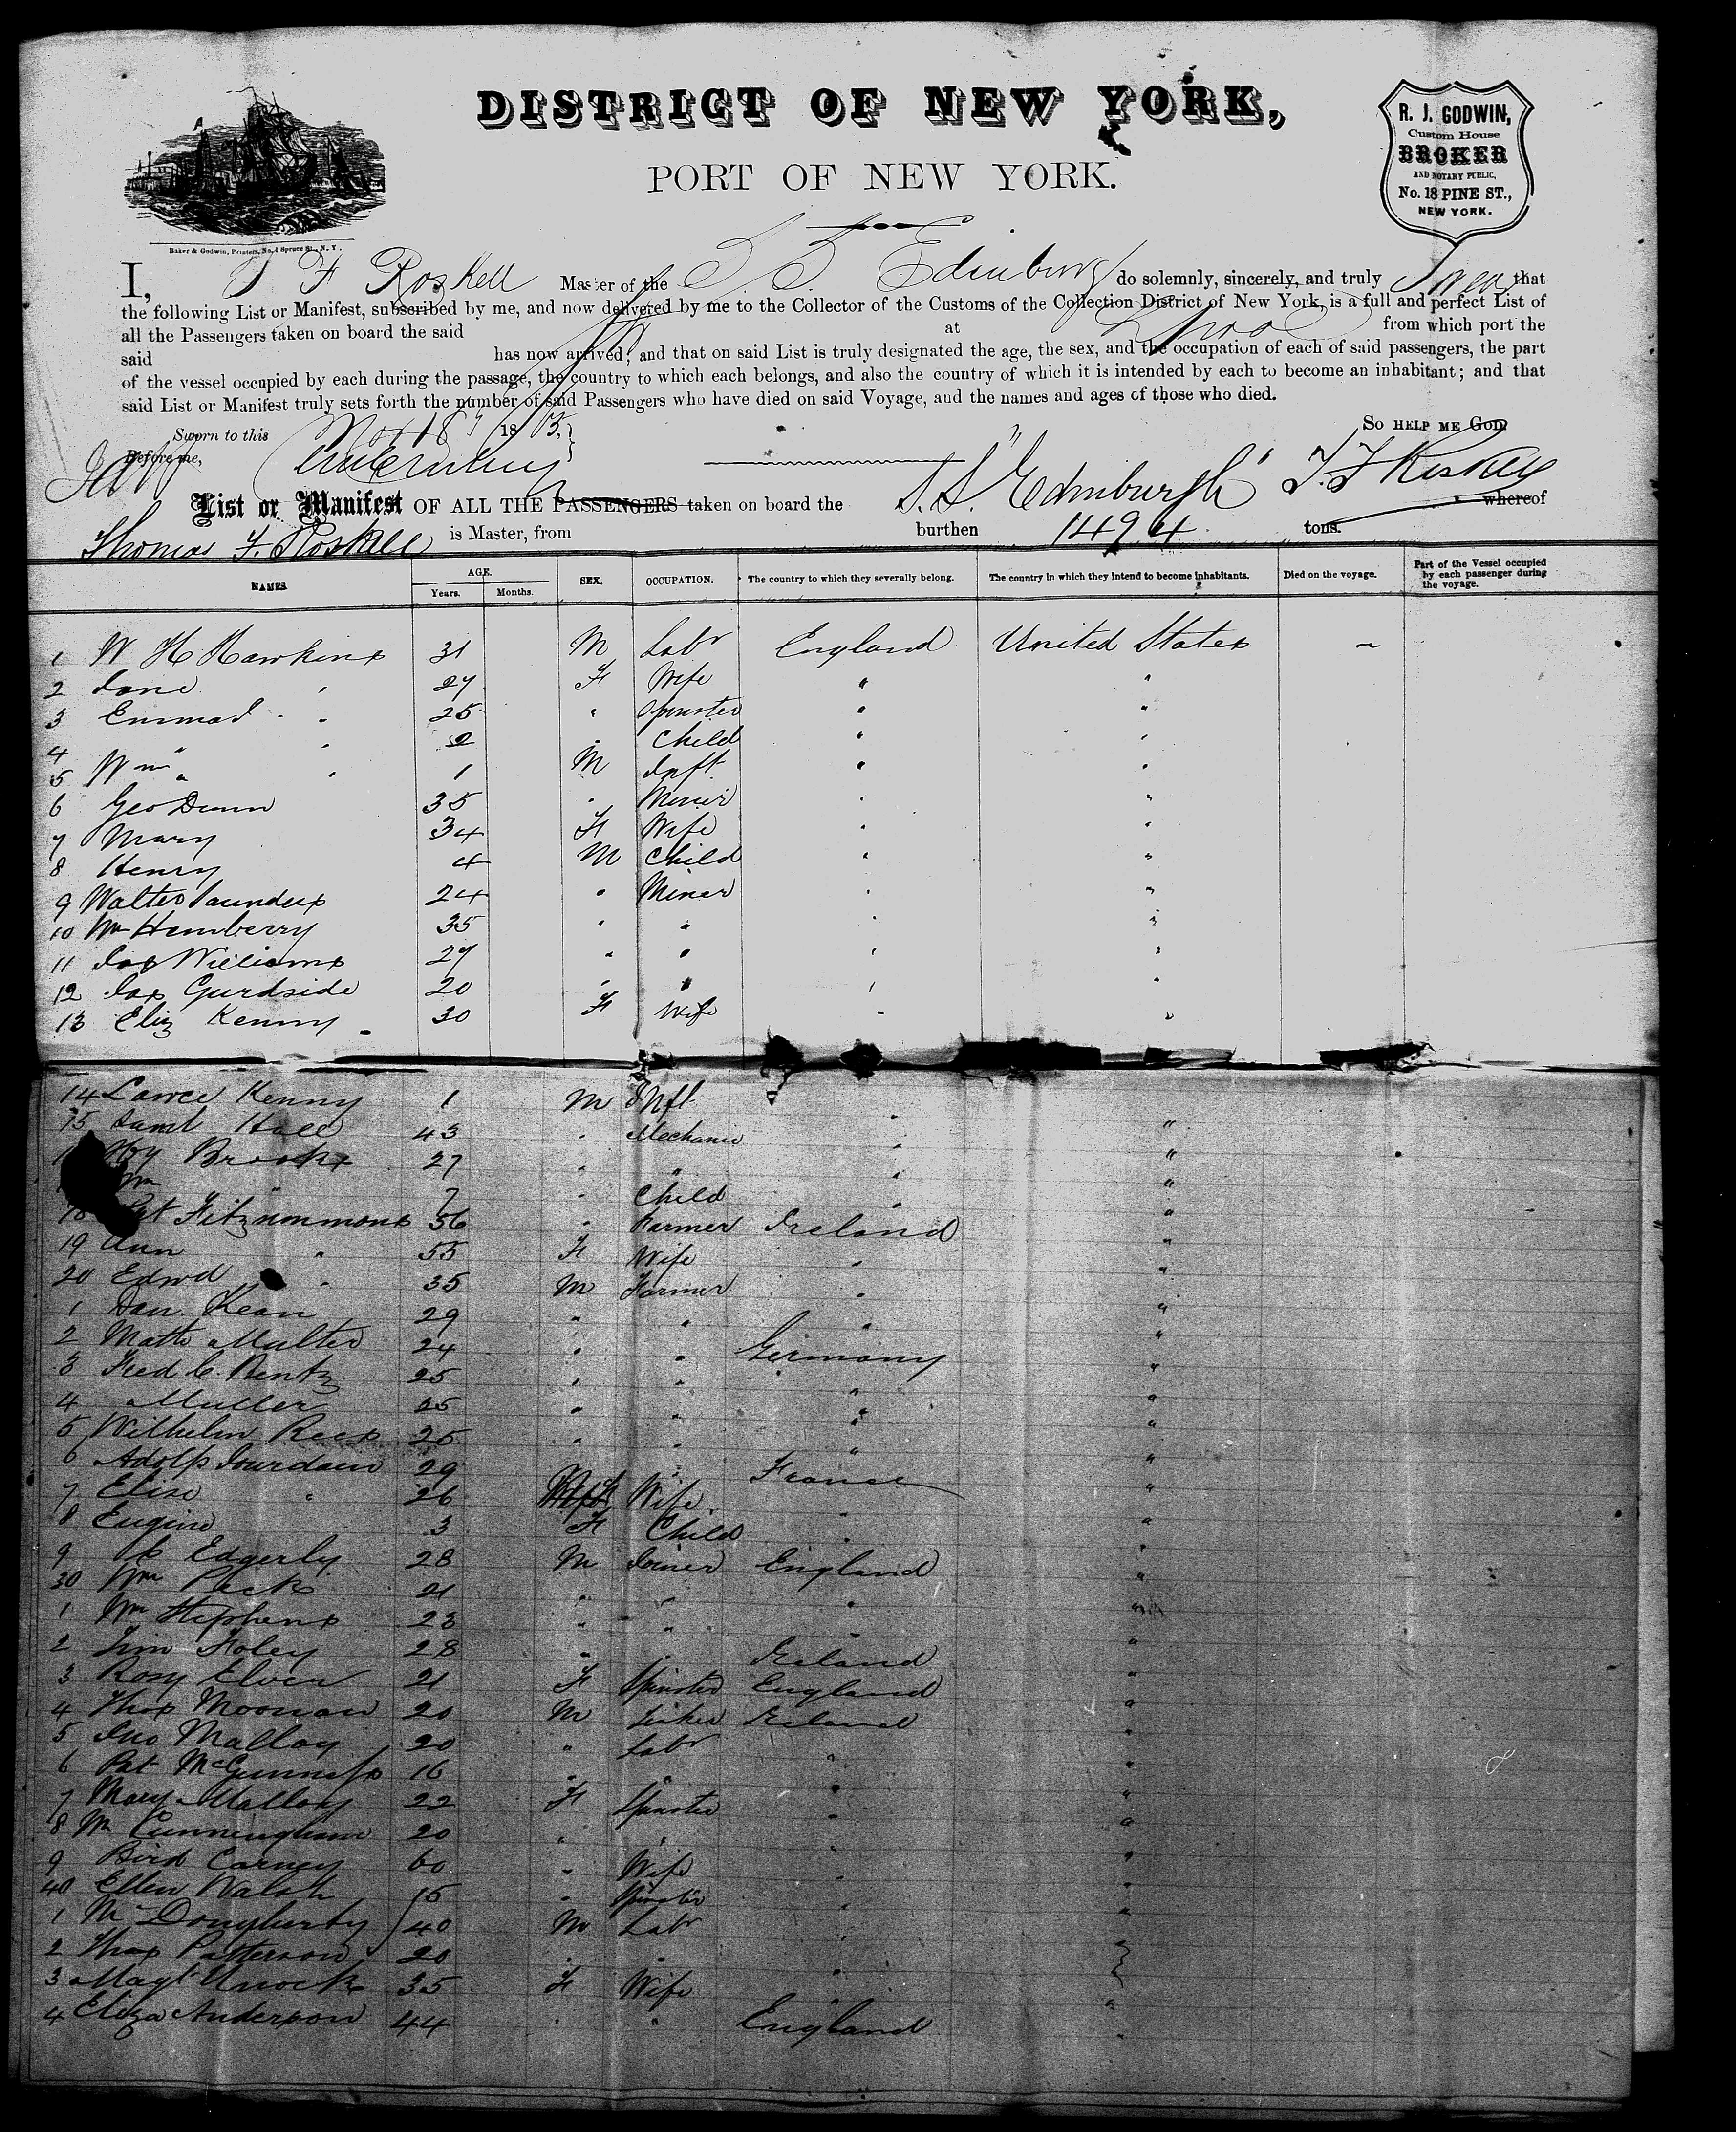 DISTRICT OF NEW YORK,
PORT OF NEW YORK.
R. J. GODWIN,
Custom House
BROKER
AND NOTARY PUBLIC,
No. 18 PINE ST.,
NEW YORK.
Baker & Godwin, Printers, No. 1 Spruce St., N. Y.
I, T F Roskell Master of the S. S. Edinburg do solemnly, sincerely, and truly Swear that
the following List or Manifest, subscribed by me, and now delivered by me to the Collector of the Customs of the Collection District of New York, is a full and perfect List of
all the Passengers taken on board the said at Lpool from which port the
said has now arrived; and that on said List is truly designated the age, the sex, and the occupation of each of said passengers, the part
of the vessel occupied by each during the passage, the country to which each belongs, and also the country of which it is intended by each to become an inhabitant; and that
said List or Manifest truly sets forth the number of said Passengers who have died on said Voyage, and the names and ages of those who died.
Sworn to this 18 18 So HELP ME GOD.
Before me, T. F Roskell
List or Manifest OF ALL THE PASSENGERS taken on board the S.S. "Edinburgh" whereof
Thomas F. Roskell is Master, from burthen 1494 tons.
NAMES. AGE. Years. Months. SEX. OCCUPATION. The country to which they severally belong. The country in which they intend to become inhabitants. Died on the voyage. Part of the Vessel occupied by each passenger during the voyage.
1 W H Hawkins 31 M Labr England United States ~
2 Jane " 27 F Wife " "
3 Emma " 25 " Spinster " "
4 " " 2 " Child " "
5 Wm " 1 M Inft " "
6 Geo Dunn 35 " Miner " "
7 Mary 34 F Wife " "
8 Henry 4 M Child " "
9 Walter Saunders 24 " Miner " "
10 Wm Hemberry 35 " " " "
11 Jas Williams 27 " " " "
12 Jas Gurdside 20 " " " "
13 Eliz Kenny 30 F Wife " "
14 Lawce Kenny 1 M Inft " "
15 Saml Hall 43 " Mechanic " "
Hy Brooks 27 " " " "
Wm " 7 " Child " "
18 Pat Fitzsimmons 56 " Farmer Ireland "
19 Ann " 55 F Wife " "
20 Edwd " 35 M Farmer " "
1 Dan. Kean 29 " " " "
2 Matte Multer 24 " " Germany "
3 Fred C. Bentz 25 " " " "
4 Muller 25 " " " "
5 Wilhelm Rees 25 " " " "
6 Adolp Jourdain 29 " " France "
7 Elise " 26 F Wife " "
8 Eugine 3 F Child " "
9 Edgerly 28 M Joiner England "
30 Wm Peck 21 " " " "
1 Wm Stephens 23 " " " "
2 Tim Foley 28 " " Ireland "
3 Rosy Elver 21 F Spinster England "
4 Thos Moonan 20 M Ireland "
5 Jno Malloy 20 " Labr " "
6 Pat McGunness 16 " " " "
7 Mary Mallory 22 F Spinster " "
8 M Cunningham 20 " " " "
9 Bird Carney 60 " Wife " "
40 Ellen Walsh 15 " Spinster " "
1 M Dougherty 40 M Labr " "
2 Thos Patterson 20 " " " "
3 Magt Knock 35 F Wife " "
4 Eliza Anderson 44 " " England "